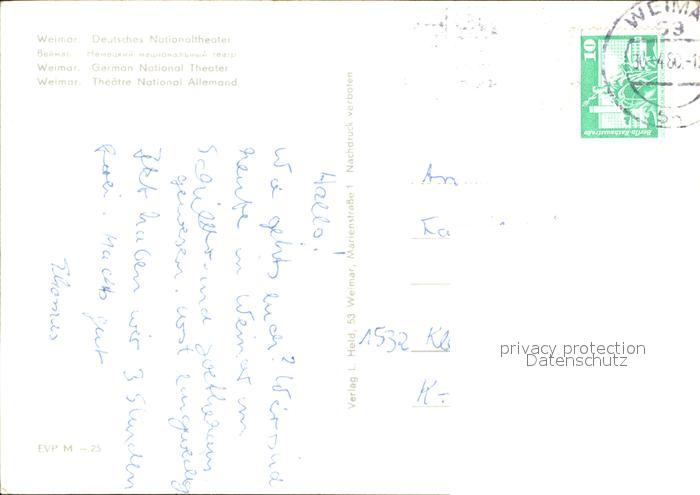 Weimar: Deutsches Nationaltheater
Веймар: Немецкий национальный театр
Weimar: German National Theater
Weimar: Théâtre National Allemand
WEIMAR
53
10
Berlin-Rathausstraße
Hallo!
Wie gehts euch? Wir sind
heute in Weimar im
Schiller- und Goethehaus
gewesen. War langweilig
Jetzt haben wir 3 Stunden
frei. Machts gut
Thomas
Verlag L. Held, 53 Weimar, Marienstraße 1 Nachdruck verboten
An
Fa
1532 Kl
K-
privacy protection
Datenschutz
EVP M -.25